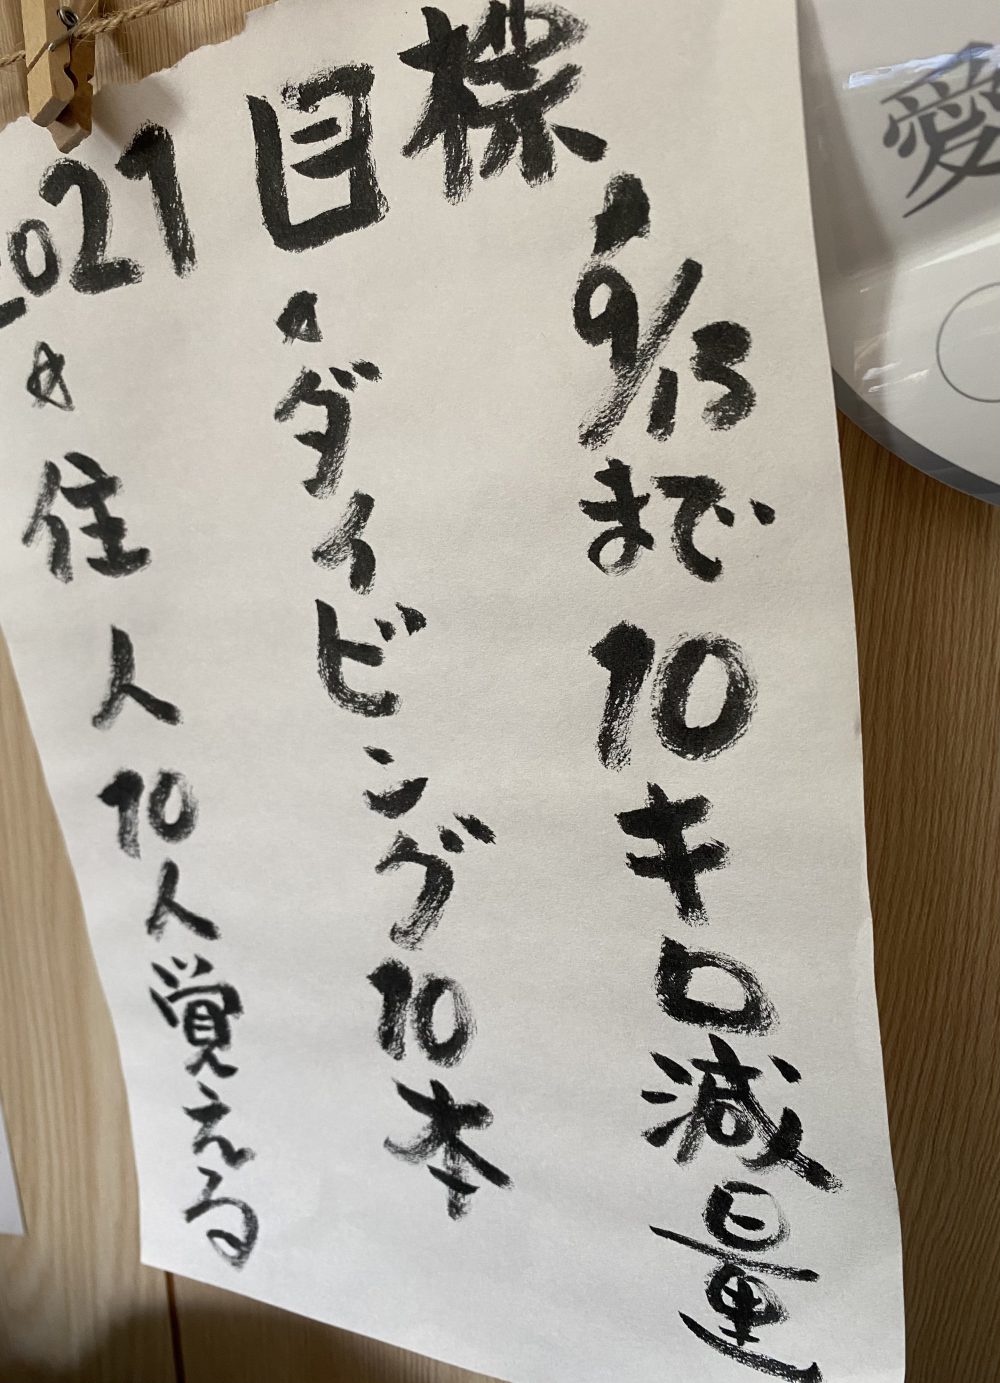 2021 目標
・9/13まで10キロ減量
・ダイビング10本
・住人10人覚える
愛